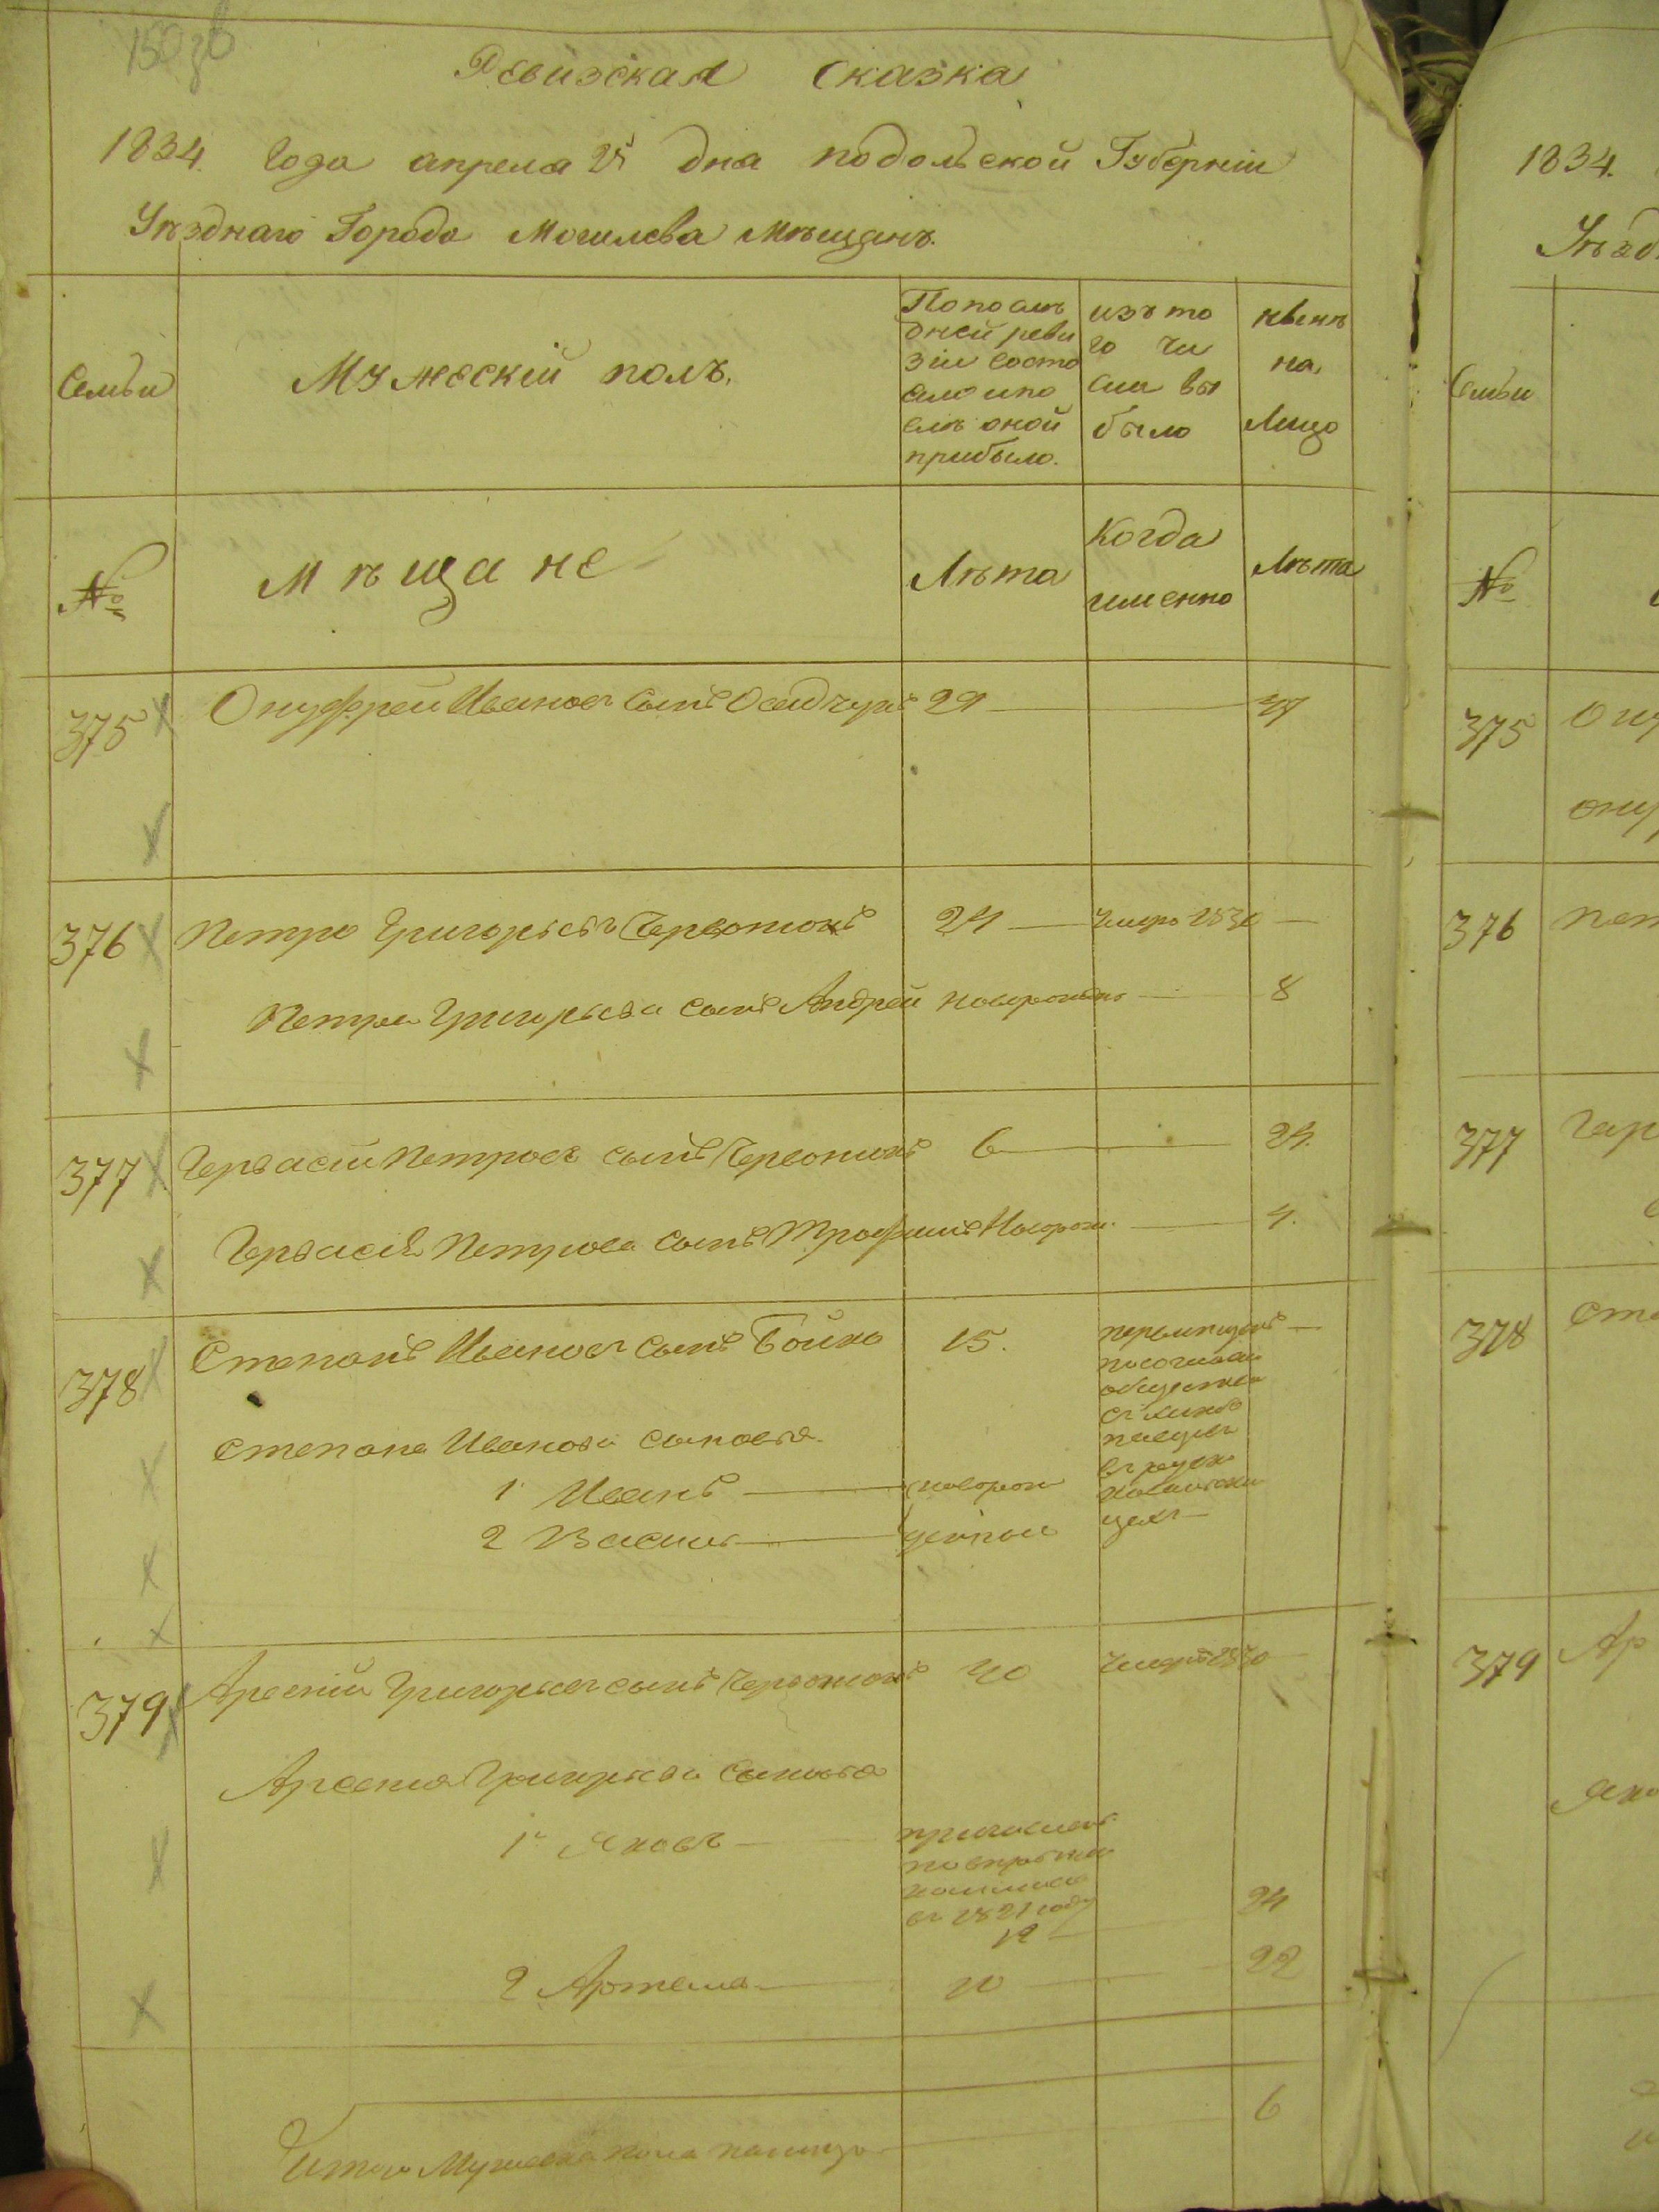 150 зв
Ревизская Сказка
1834. Года апреля 25 дня подольской Губерніи
Уѣзднаго Города Могилева Мѣщанъ.
Семьи
Мужескій полъ.
По послѣ
дней реви
зіи состо
яло и по
слѣ оной
прибыло.
изъ то
го чи
сла вы
было
нынѣ
на
Лицо
№
Мѣщане
Лѣта
Когда
именно
Лѣта
375 Онуфрей Ивановъ Сынъ 29
376 Петро Григорьевъ Червотюкъ 24 Умеръ 1830
Петра Григорьева сынъ Андрей новорожден 8
377 Гервасій Петровъ сынъ Червотюкъ 6 24.
Гервасія Петрова сынъ Трофимъ Новорож. 4.
378 Степанъ Ивановъ сынъ Бойко 15.
Степана Иванова сыновья
1 Иванъ новорож
2 Василь денныи
цехъ
379 Арсеній Григорьевъ сынъ Червотюкъ 40 Умеръ 1830
Арсенія Григорьева сыновья
1 Яковъ
въ 1821 году
12 24
2 Артема 10 22
Итого Мужеска пола налицо 6
1834.
Уѣзд
Семьи
№
375 Ону
Ону
376 Пет
377 Гер
378 Сте
379 Ар
Яко